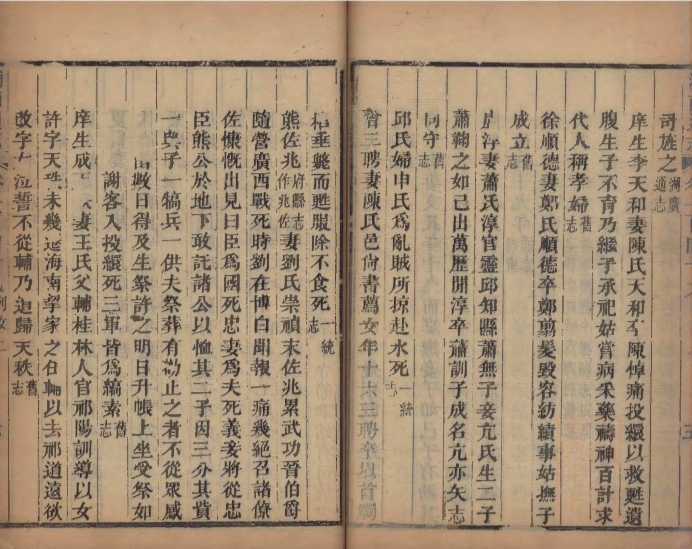 司旌之湖廣通志
庠生李天和妻陳氏天和卒陳悼痛投繯以救甦遺
腹生子不育乃繼子承祀姑嘗病采藥禱神百計求
代人稱孝婦舊志
徐順德妻鄭氏順德卒鄭翦髮毀容紡績事姑撫子
成立舊志
妻蕭氏淳官靈邱知縣蕭無子妾亢氏生二子
蕭鞠之如己出萬歷間淳卒蕭訓子成名亢亦矢志
同守舊志
邱氏婦申氏爲亂賊所掠赴水死一統志
曾三聘妻陳氏邑尚書薦女年十六三聘卒以首觸
垂斃而甦服除不食死一統志
熊佐兆府縣志作兆佐妻劉氏崇禎末佐兆累武功晉伯爵
隨營廣西戰死時劉在博白聞報一痛幾絕召諸僚
佐慷慨出見曰臣爲國死忠妻爲夫死義妾將從忠
臣熊公於地下敢託諸公以恤其二子因三分其貲
一與子一犒兵一供夫祭葬有勸止之者不從眾感
數日得及生祭許之明日升帳上坐受祭如
謝客入投繯死三軍皆爲縞素舊志
庠生成妻王氏父輔桂林人官祁陽訓導以女
許字天秩未幾海南挈家之任輔以去祁道遠欲
改字泣誓不從輔乃追歸天秩舊志